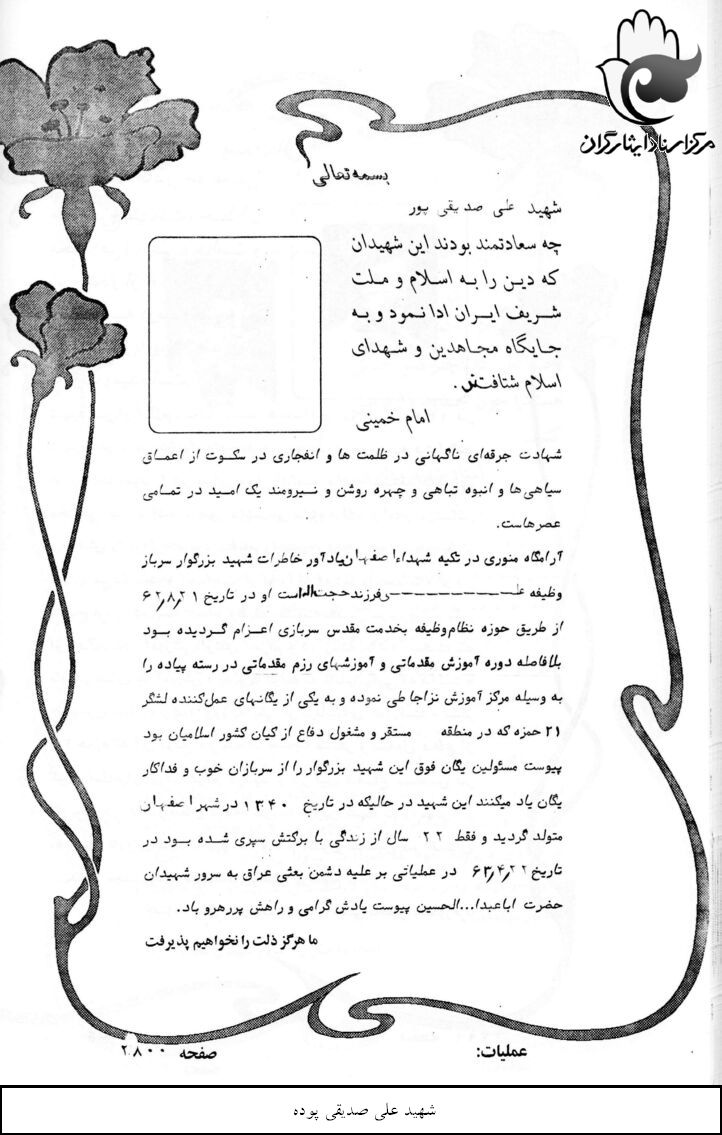 مرکز اسناد ایثارگران
بسمه تعالی
شهید علی صدیقی پور
چه سعادتمند بودند این شهیدان
که دین را به اسلام و ملت
شریف ایران ادا نمود و به
جایگاه مجاهدین و شهدای
اسلام شتافتند.
امام خمینی
شهادت جرقه‌ای ناگهانی در ظلمت ها و انفجاری در سکوت از اعماق
سیاهی‌ها و انبوه تباهی و چهره روشن و نیرومند یک امید در تمامی
عصرهاست.
آرامگاه منوری در تکیه شهداء اصفهان یادآور خاطرات شهید بزرگوار سرباز
وظیفه علی فرزند حجت الله است او در تاریخ ۶۲٫۸٫۲۱
از طریق حوزه نظام وظیفه بخدمت مقدس سربازی اعزام گردیده بود
بلافاصله دوره آموزش مقدماتی و آموزشهای رزم مقدماتی در رسته پیاده را
به وسیله مرکز آموزش نزاجا طی نموده و به یکی از یگانهای عمل‌کننده لشگر
۲۱ حمزه که در منطقه مستقر و مشغول دفاع از کیان کشور اسلامیان بود
پیوست مسئولین یگان فوق این شهید بزرگوار را از سربازان خوب و فداکار
یگان یاد میکنند این شهید در حالیکه در تاریخ ۱۳۴۰ در شهر اصفهان
متولد گردید و فقط ۲۲ سال از زندگی با برکتش سپری شده بود در
تاریخ ۶۳٫۴٫۲۲ در عملیاتی بر علیه دشمن بعثی عراق به سرور شهیدان
حضرت اباعبدا...الحسین پیوست یادش گرامی و راهش پررهرو باد.
ما هرگز ذلت را نخواهیم پذیرفت
عملیات: صفحه ۲۸۰۰
شهید علی صدیقی پوده